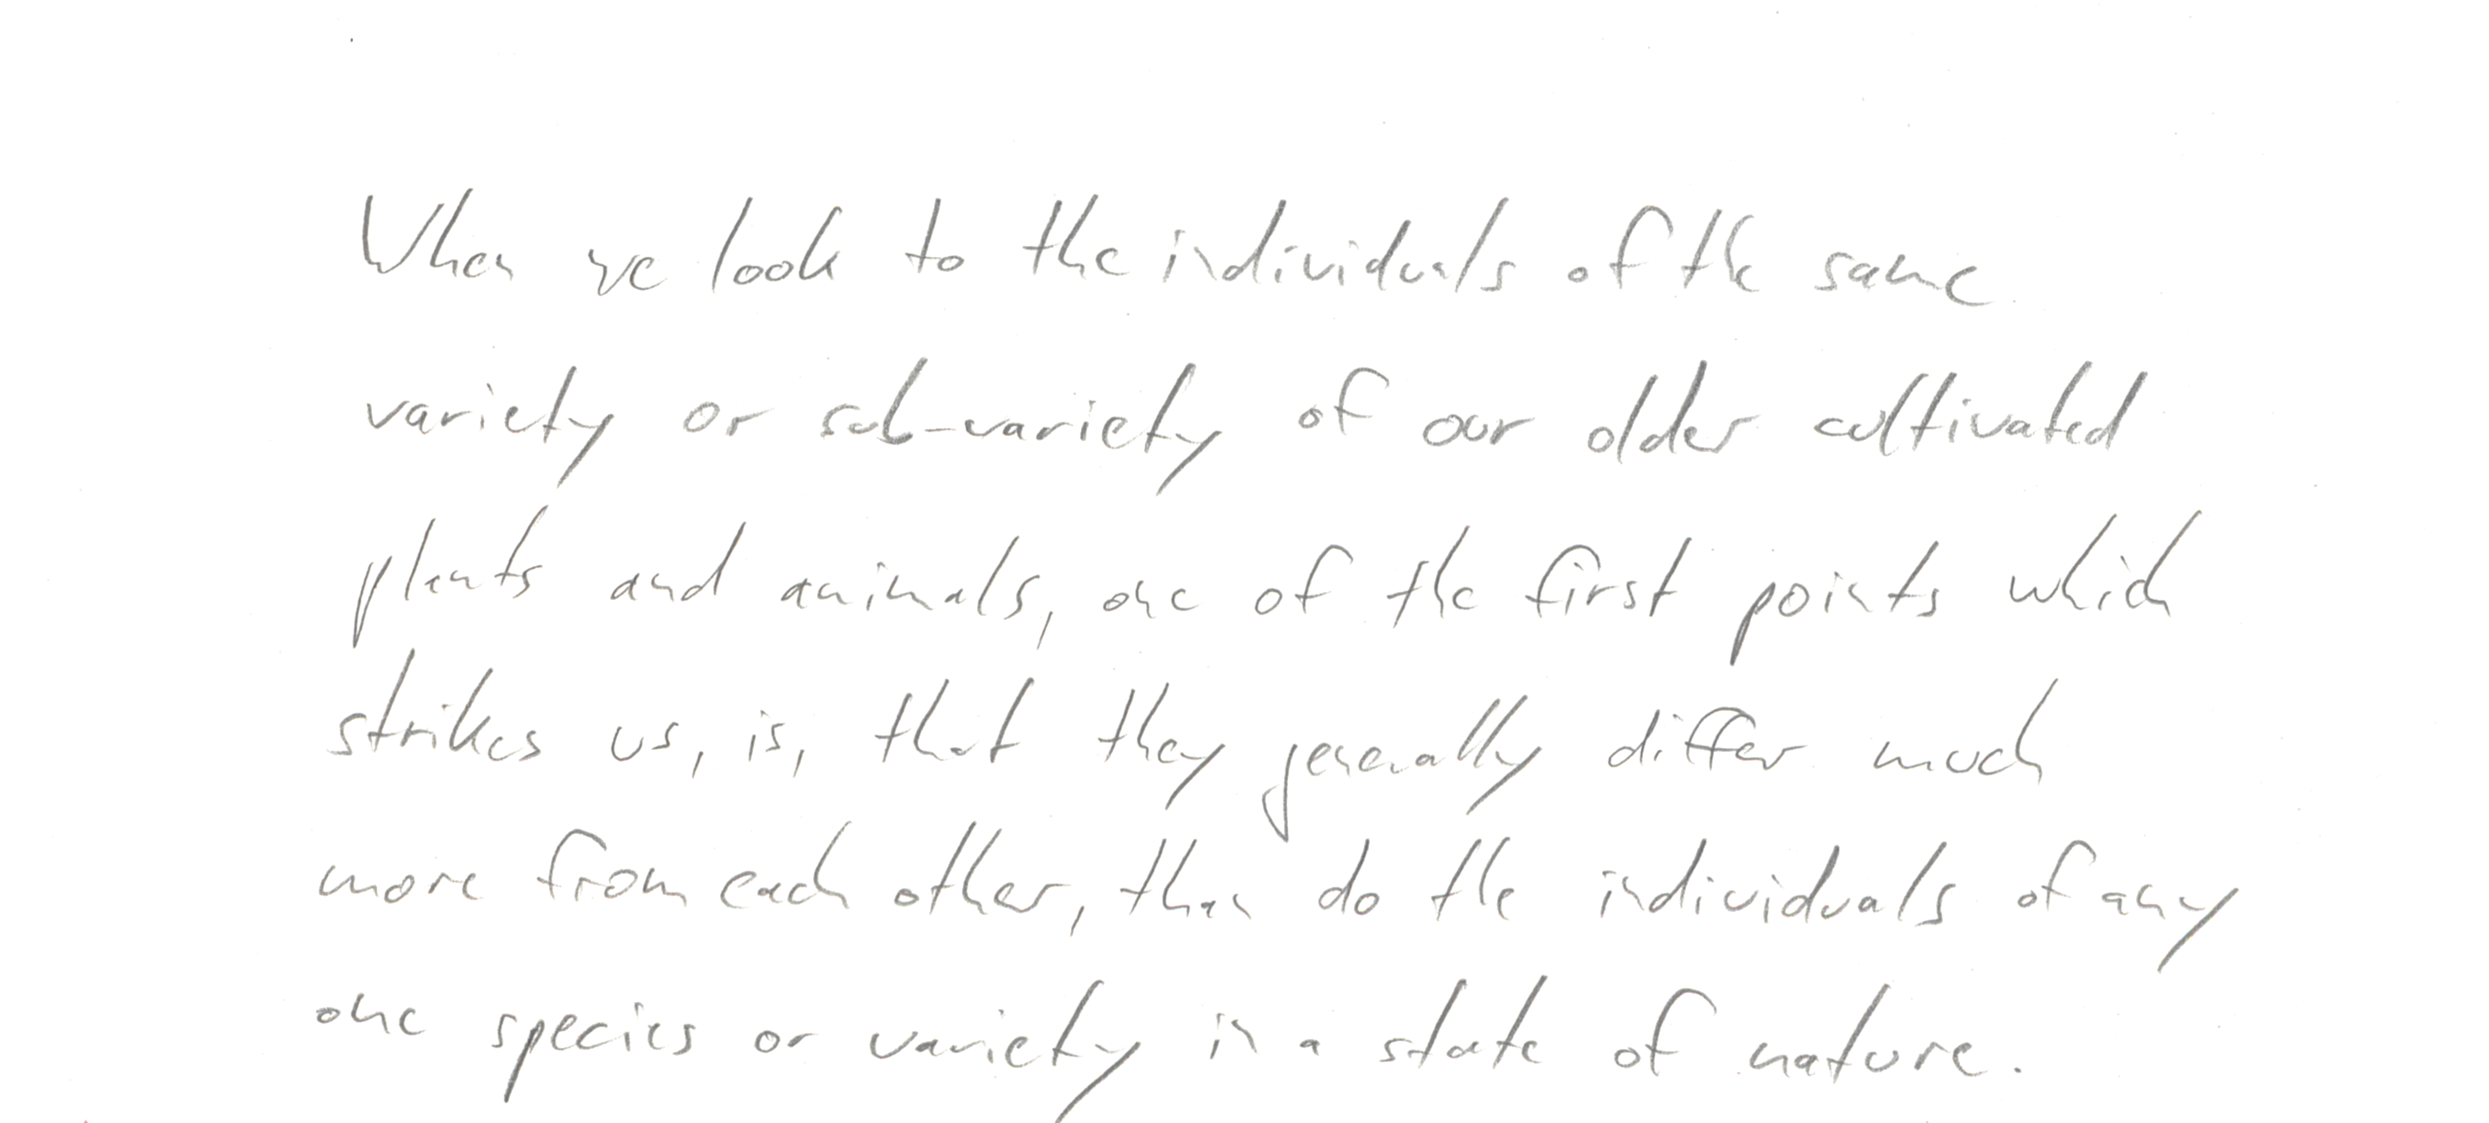 When we look to the individuals of the same
variety or sub-variety of our older cultivated
plants and animals, one of the first points which
strikes us, is, that they generally differ much
more from each other, than do the individuals of any
one species or variety in a state of nature.